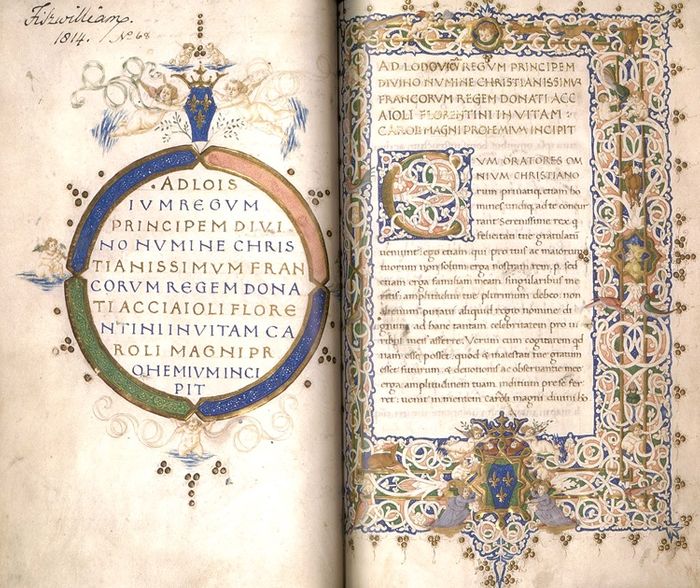 Fitzwilliam.
1814. / No 68
.ADLOIS
IUM REGUM
PRINCIPEM DIVI
NO NUMINE CHRIS
TIANISSIMUM FRAN
CORUM REGEM DONA
TI ACCIAIOLI FLORE
NTINI IN VITAM CA
ROLI MAGNI PR
OHEMIUM INCI
PIT
AD LODOVICŪ REGUM PRINCIPEM
DIVINO NUMINE CHRISTIANISSIMŪ
FRANCORUM REGEM DONATI ACC
AIOLI FLORENTINI IN VITAM
CAROLI MAGNI PROHEMIUM INCIPIT
CUM ORATORES OM
NIUM CHRISTIANO
rum principūq; etiam ho
mines undiq; ad te concur
rant Serenissime rex q
felicitati tue gratulatū
ueniunt: ego etiam qui pro tuis ac maiorum
tuorum non solum erga nostram rem p. sed
etiam erga familiam meam singularibus me
ritis: amplitudini tue plurimum debeo: non
alienum putaui aliquid regio nomine: di
gnum ad hanc tantam celebritatem pro ui
ribus meis afferre. Verum cum cogitarem qd
nam esse posset: quod & maiestati tue gratum
esset futurum: & deuotionis ac obseruantie mee
erga amplitudinem tuam, inditium pre se fer
ret: uenit in mentem caroli magni diuini ho